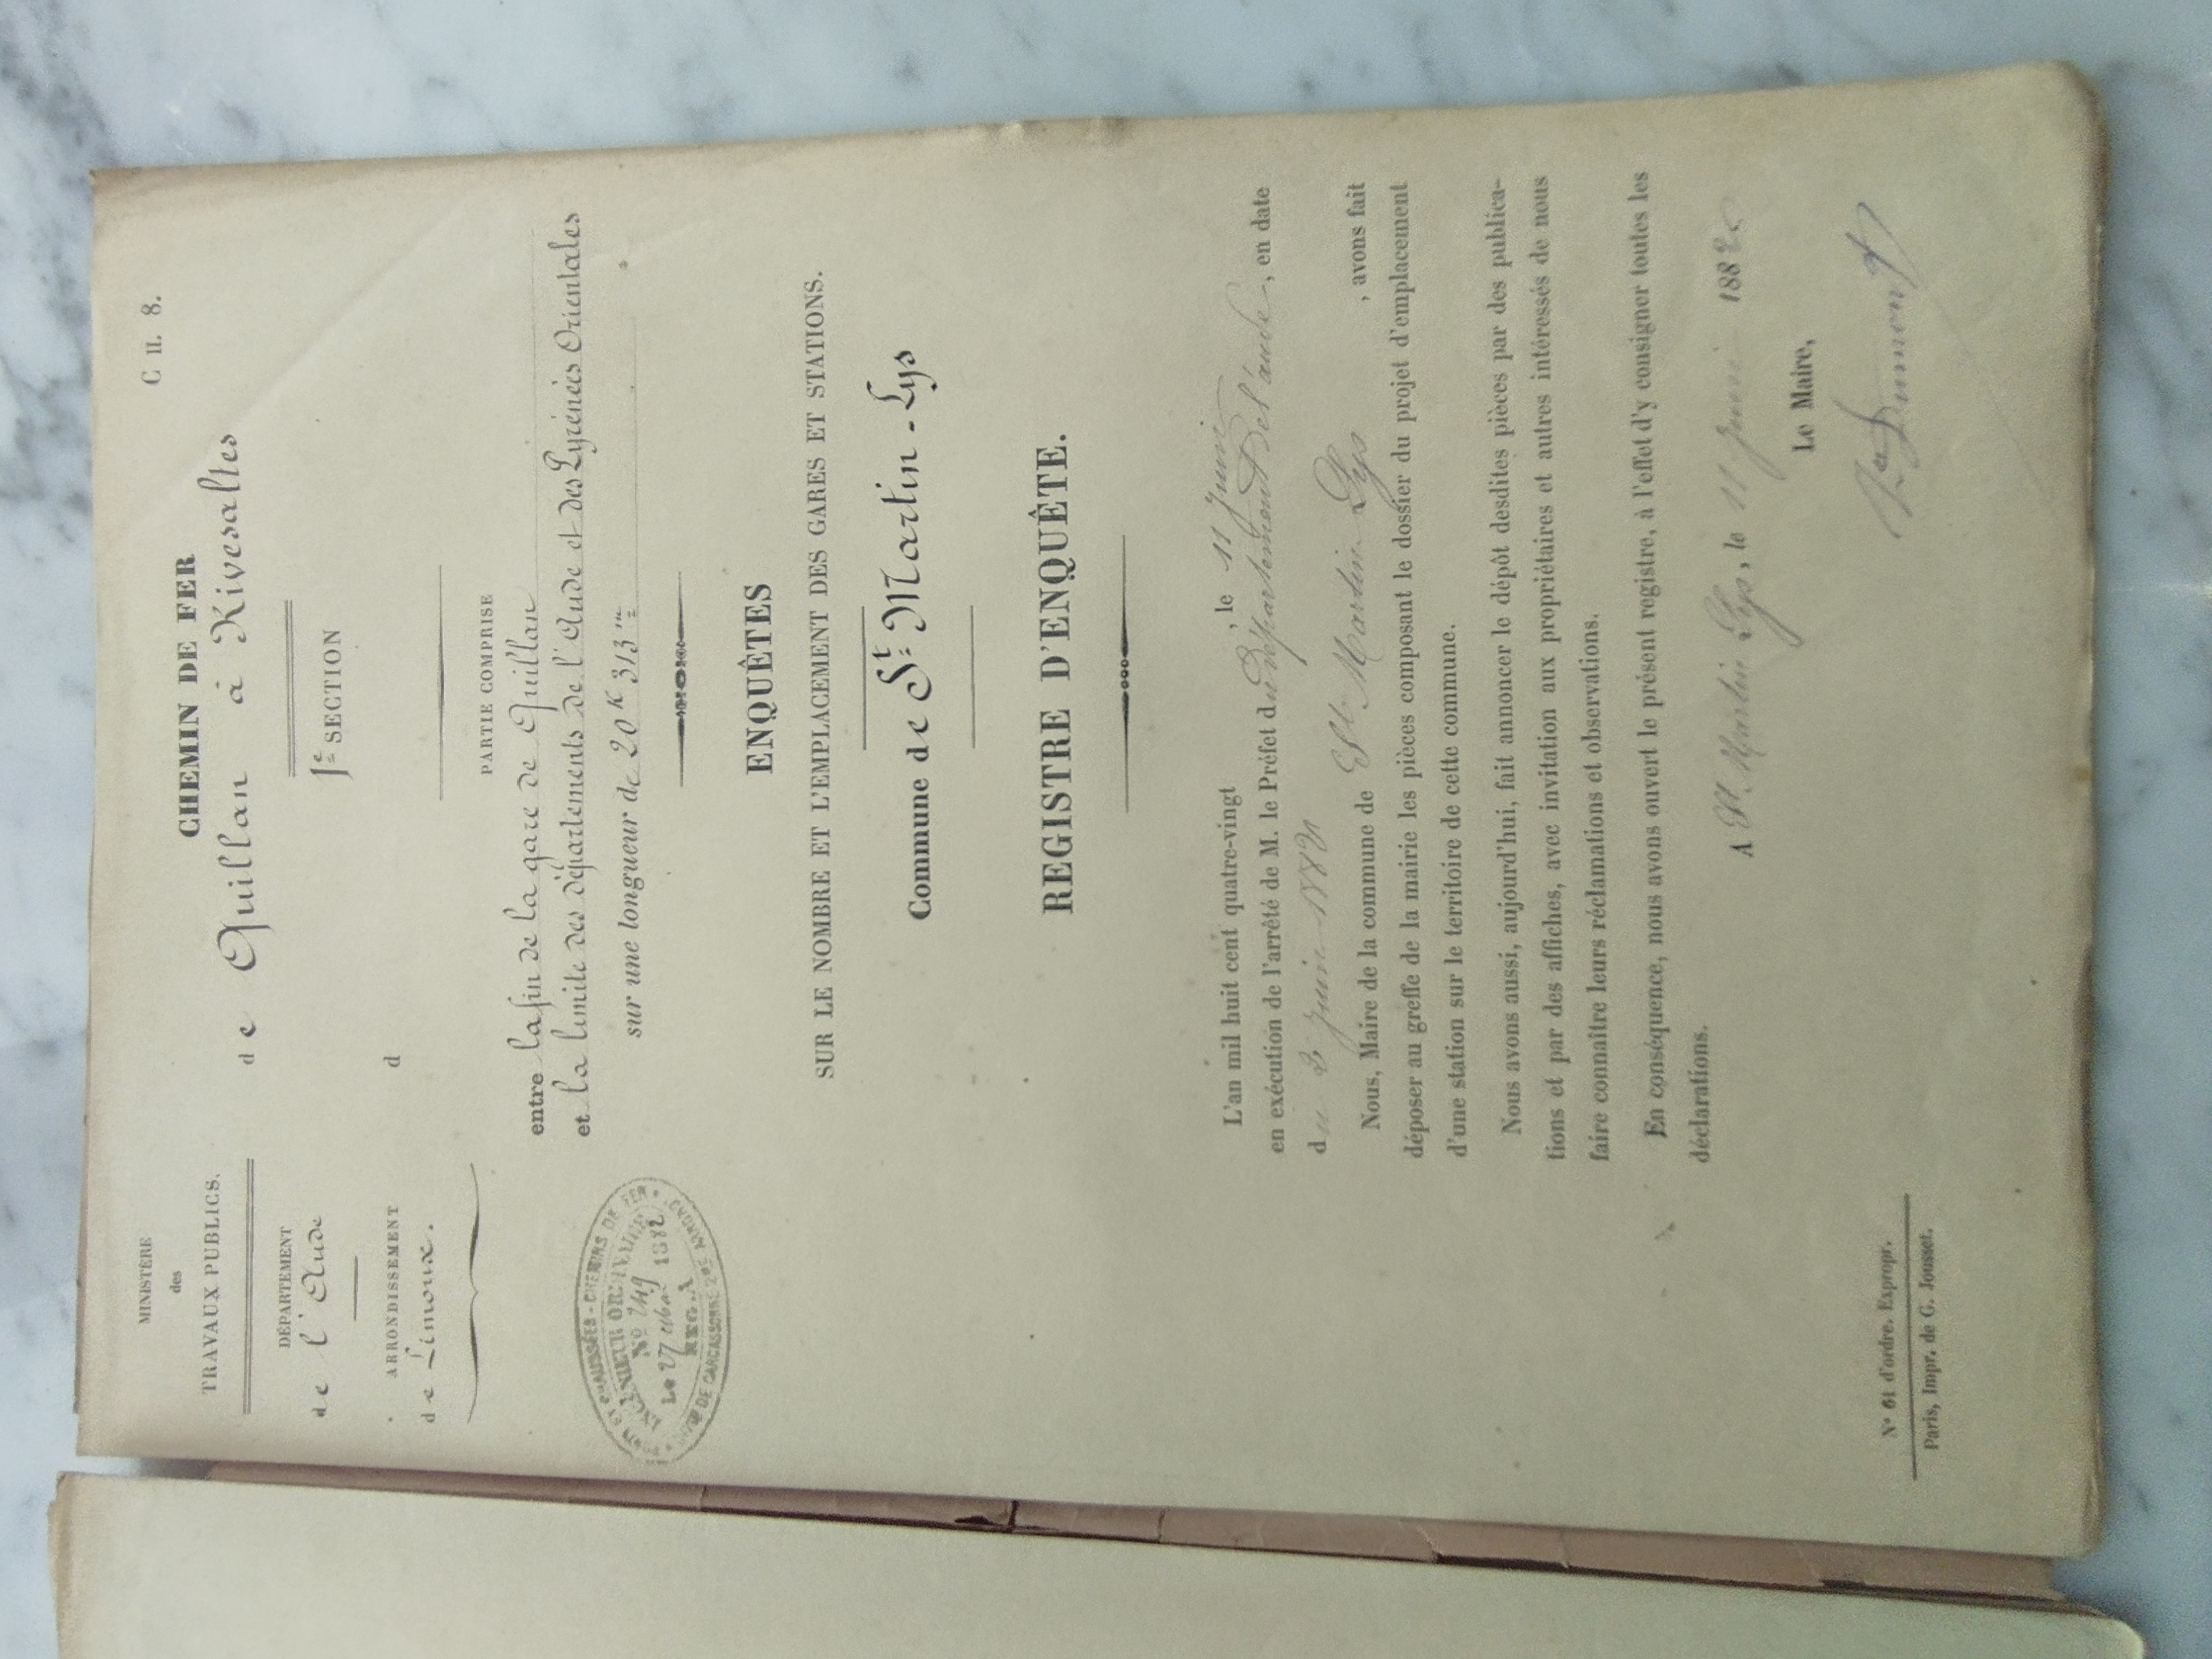 MINISTÈRE
des
TRAVAUX PUBLICS.
DÉPARTEMENT
de l'Aude
ARRONDISSEMENT
de Limoux.
PONTS ET CHAUSSÉES - CHEMINS DE FER
INGÉNIEUR ORDINAIRE
No 249
Le 27 mai 1882
REG. A
DE CARCASSONNE 2ME ARROND
C H. 8.
CHEMIN DE FER
de Quillan à Rivesaltes
1e SECTION
d
PARTIE COMPRISE
entre la fin de la gare de Quillan
et la limite des départements de l'Aude et des Pyrénées Orientales
sur une longueur de 20K 313m
ENQUÊTES
SUR LE NOMBRE ET L'EMPLACEMENT DES GARES ET STATIONS.
Commune de St Martin-Lys
REGISTRE D'ENQUÊTE.
L'an mil huit cent quatre-vingt , le 11 Juin
en exécution de l'arrêté de M. le Préfet du département de l'aude, en date
du Juin 1882
Nous, Maire de la commune de St Martin Lys , avons fait
déposer au greffe de la mairie les pièces composant le dossier du projet d'emplacement
d'une station sur le territoire de cette commune.
Nous avons aussi, aujourd'hui, fait annoncer le dépôt desdites pièces par des publica-
tions et par des affiches, avec invitation aux propriétaires et autres intéressés de nous
faire connaître leurs réclamations et observations.
En conséquence, nous avons ouvert le présent registre, à l'effet d'y consigner toutes les
déclarations.
A St Martin Lys, le 11 Juin 1882
Le Maire,
Dumont
N° 61 d'ordre. Expropr.
Paris, Impr. de G. Jousset.